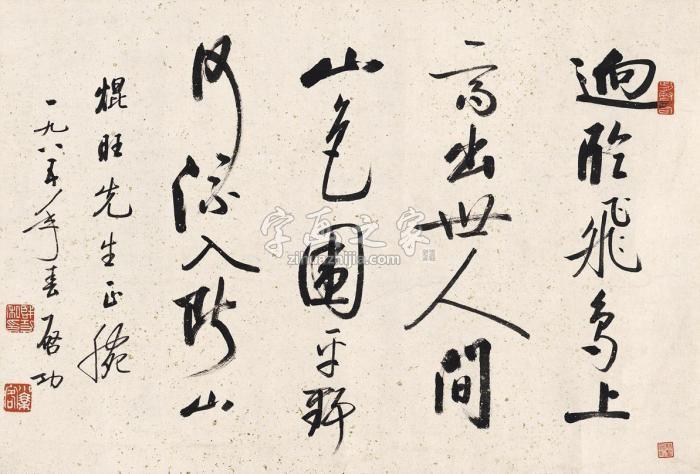 迥临飛鸟上
高出世人間
山色圍平野
河流入断山
焜旺先生正腕
一九八五年春 启功
字画之家
zihuazhijia.com